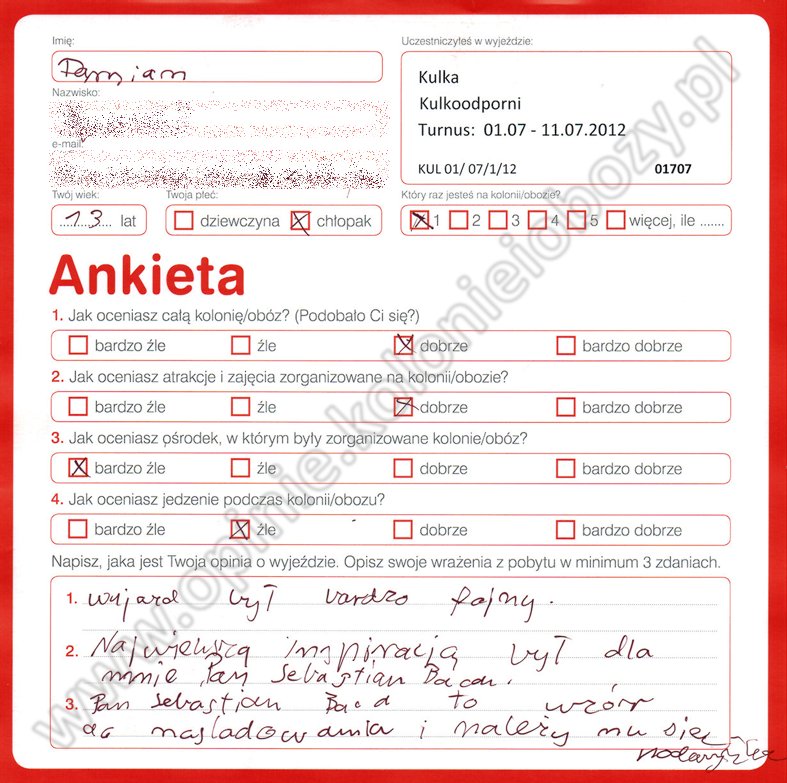 Imię:
Damian
Uczestniczyłeś w wyjeździe:
Kulka
Kulkoodporni
Turnus: 01.07 - 11.07.2012
KUL 01/ 07/1/12 01707
Nazwisko:
e-mail:
Twój wiek:
13 lat
Twoja płeć:
dziewczyna chłopak
Który raz jesteś na kolonii/obozie?
1 2 3 4 5 więcej, ile .......
Ankieta
1. Jak oceniasz całą kolonię/obóz? (Podobało Ci się?)
bardzo źle źle dobrze bardzo dobrze
2. Jak oceniasz atrakcje i zajęcia zorganizowane na kolonii/obozie?
bardzo źle źle dobrze bardzo dobrze
3. Jak oceniasz ośrodek, w którym były zorganizowane kolonie/obóz?
bardzo źle źle dobrze bardzo dobrze
4. Jak oceniasz jedzenie podczas kolonii/obozu?
bardzo źle źle dobrze bardzo dobrze
Napisz, jaka jest Twoja opinia o wyjeździe. Opisz swoje wrażenia z pobytu w minimum 3 zdaniach.
1. wyjazd był bardzo fajny.
2. Największą inspiracją był dla
mnie Pan Sebastian Bacan.
3. Pan Sebastian to wzór
do nasladowania i należy mu się
www.opinie.kolonieiobozy.pl